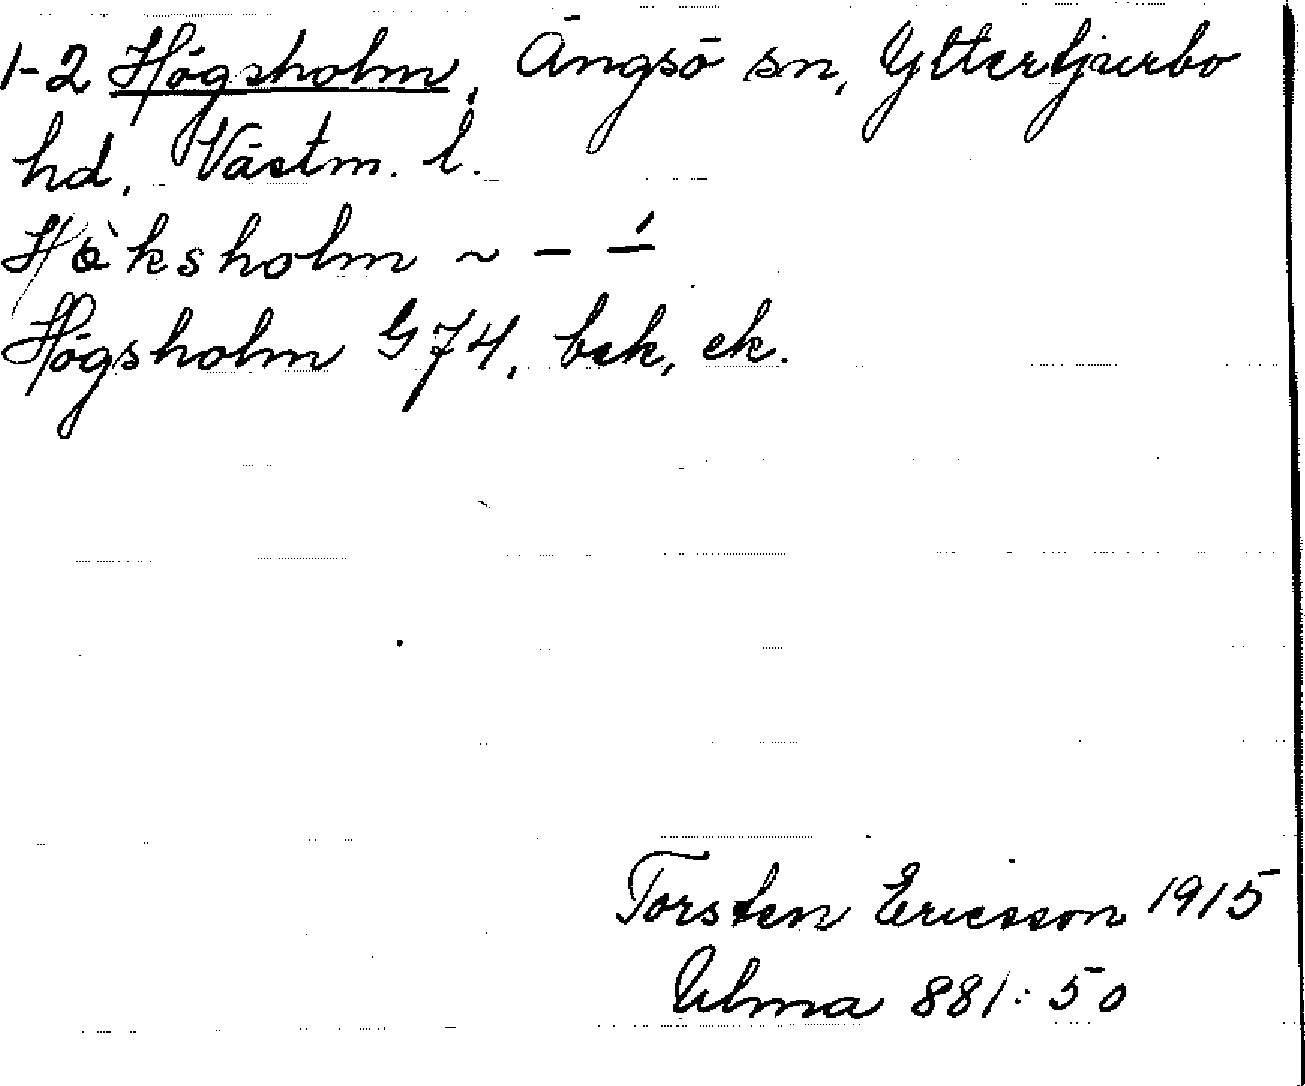 1-2 Högsholm, Ängsö sn, Yttertjurbo
hd, Västm. l.
Hö̀ksholm ~ – –́
Högsholm G 74, bsk, ek.
Torsten Ericsson 1915
Ulma 881:50